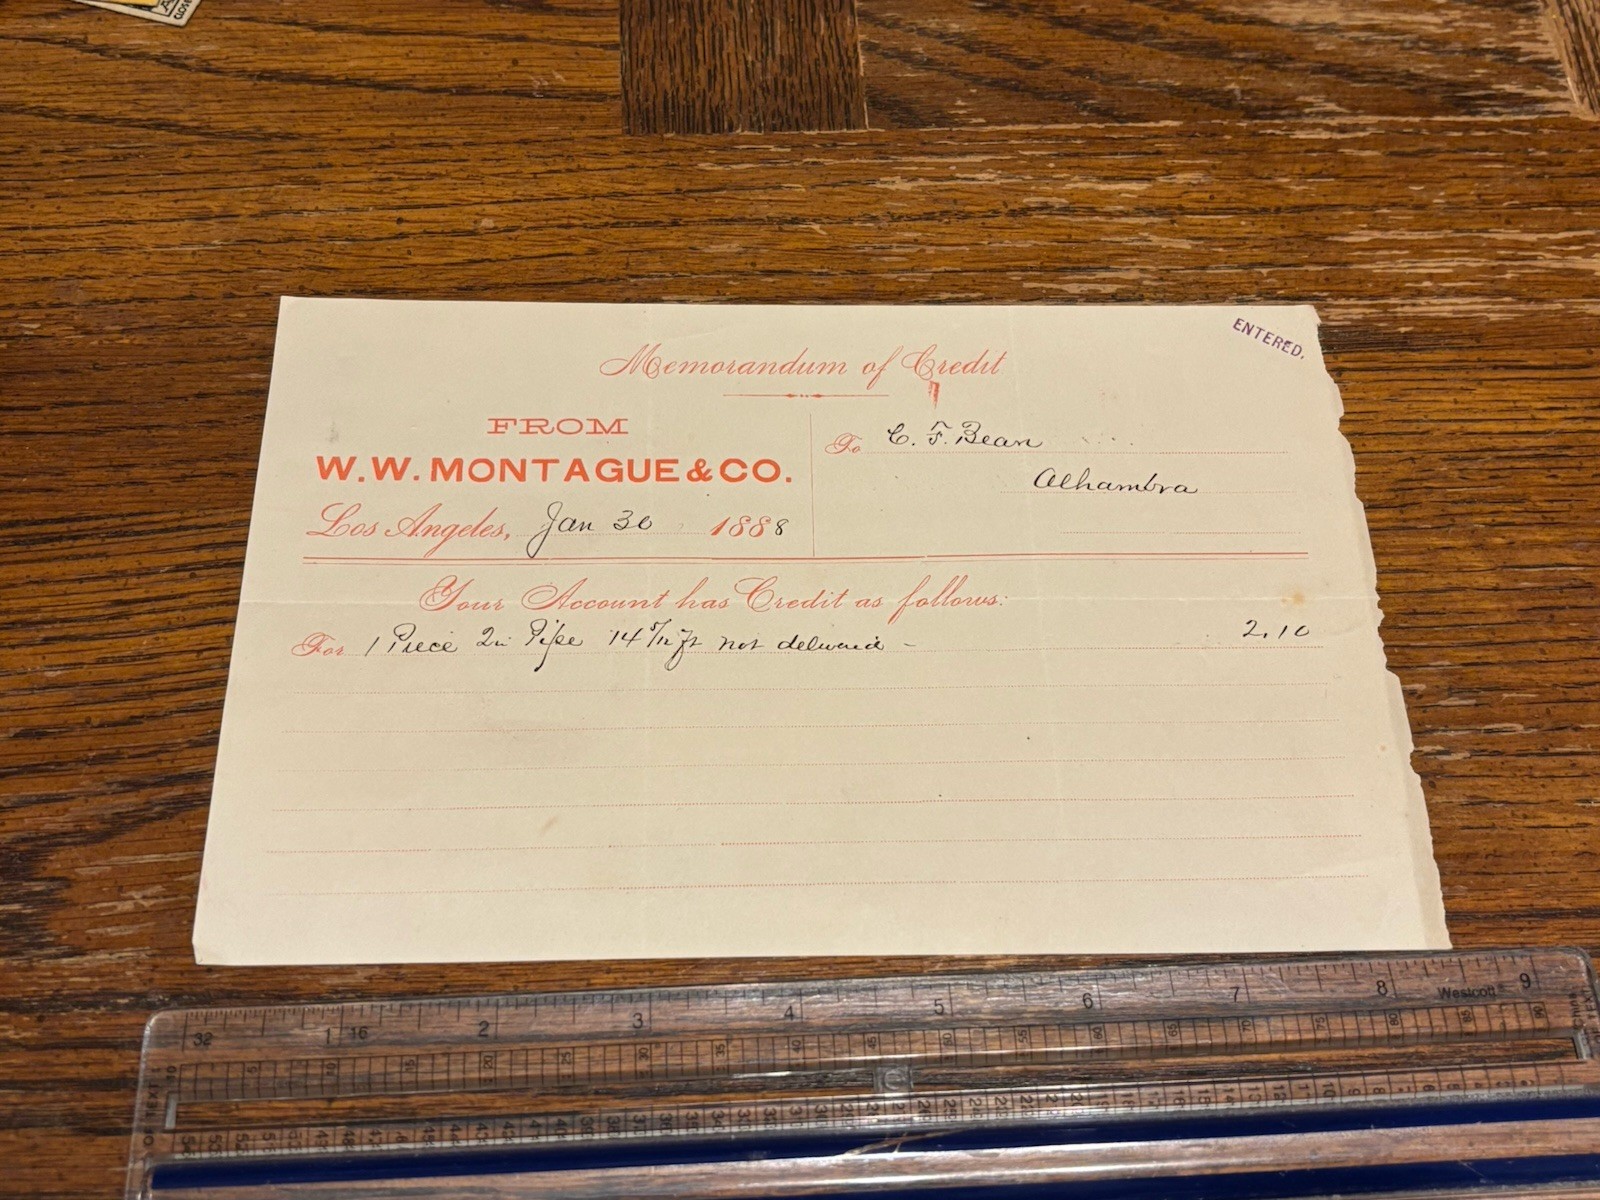 ENTERED.
Memorandum of Credit
FROM
W. W. MONTAGUE & CO.
Los Angeles, Jan 30 1888
To C. F. Bean
Alhambra
Your Account has Credit as follows:
For 1 Piece 2in Pipe 14 5/12 ft not delivered - 2.10
32 1 16 2 3 4 5 6 7 8 Westcott 9